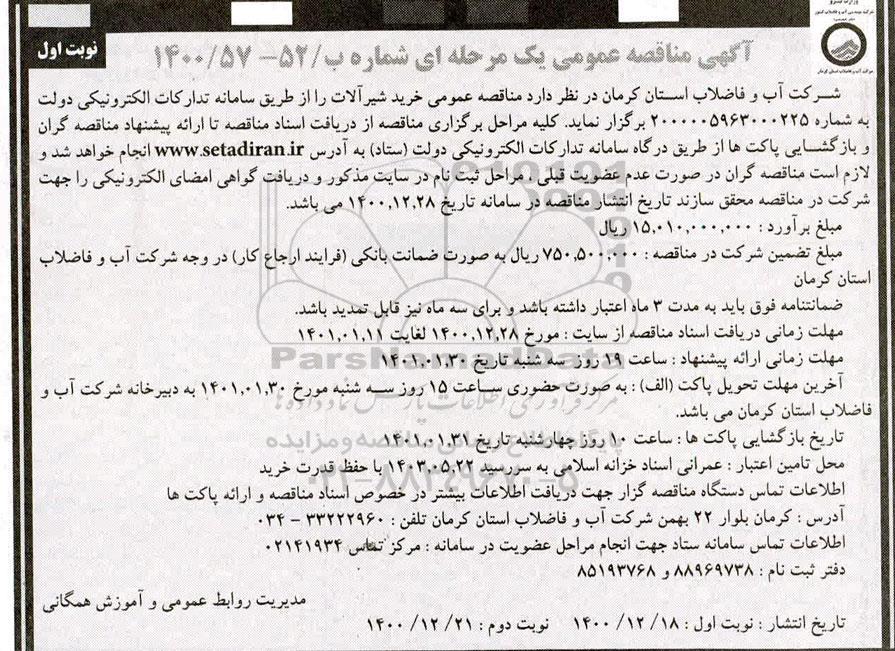 وزارت نیرو
شرکت مهندسی آب و فاضلاب کشور
شرکت آب و فاضلاب استان کرمان
نوبت اول
آگهی مناقصه عمومی یک مرحله ای شماره ب/۵۲- ۱۴۰۰/۵۷
شرکت آب و فاضلاب استان کرمان در نظر دارد مناقصه عمومی خرید شیرآلات را از طریق سامانه تدارکات الکترونیکی دولت
به شماره ۲۰۰۰۰۰۵۹۶۳۰۰۰۲۲۵ برگزار نماید. کلیه مراحل برگزاری مناقصه از دریافت اسناد مناقصه تا ارائه پیشنهاد مناقصه گران
و بازگشایی پاکت ها از طریق درگاه سامانه تدارکات الکترونیکی دولت (ستاد) به آدرس www.setadiran.ir انجام خواهد شد و
لازم است مناقصه گران در صورت عدم عضویت قبلی ، مراحل ثبت نام در سایت مذکور و دریافت گواهی امضای الکترونیکی را جهت
شرکت در مناقصه محقق سازند تاریخ انتشار مناقصه در سامانه تاریخ ۱۴۰۰,۱۲,۲۸ می باشد.
مبلغ برآورد : ۱۵,۰۱۰,۰۰۰,۰۰۰ ریال
مبلغ تضمین شرکت در مناقصه : ۷۵۰,۵۰۰,۰۰۰ ریال به صورت ضمانت بانکی (فرایند ارجاع کار) در وجه شرکت آب و فاضلاب
استان کرمان
ضمانتنامه فوق باید به مدت ۳ ماه اعتبار داشته باشد و برای سه ماه نیز قابل تمدید باشد.
مهلت زمانی دریافت اسناد مناقصه از سایت : مورخ ۱۴۰۰,۱۲,۲۸ لغایت ۱۴۰۱,۰۱,۱۱
مهلت زمانی ارائه پیشنهاد : ساعت ۱۹ روز سه شنبه تاریخ ۱۴۰۱,۰۱,۳۰
ParsNamadData
آخرین مهلت تحویل پاکت (الف) : به صورت حضوری ساعت ۱۵ روز سه شنبه مورخ ۱۴۰۱,۰۱,۳۰ به دبیرخانه شرکت آب و
فاضلاب استان کرمان می باشد.
تاریخ بازگشایی پاکت ها : ساعت ۱۰ روز چهارشنبه تاریخ ۱۴۰۱,۰۱,۳۱
محل تامین اعتبار : عمرانی اسناد خزانه اسلامی به سررسید ۱۴۰۳,۰۵,۲۲ با حفظ قدرت خرید
اطلاعات تماس دستگاه مناقصه گزار جهت دریافت اطلاعات بیشتر در خصوص اسناد مناقصه و ارائه پاکت ها
آدرس : کرمان بلوار ۲۲ بهمن شرکت آب و فاضلاب استان کرمان تلفن : ۳۳۲۲۲۹۶۰ - ۰۳۴
اطلاعات تماس سامانه ستاد جهت انجام مراحل عضویت در سامانه : مرکز تماس ۰۲۱۴۱۹۳۴
دفتر ثبت نام : ۸۸۹۶۹۷۳۸ و ۸۵۱۹۳۷۶۸
مدیریت روابط عمومی و آموزش همگانی
تاریخ انتشار : نوبت اول : ۱۸/ ۱۲/ ۱۴۰۰ نوبت دوم : ۲۱/ ۱۲/ ۱۴۰۰